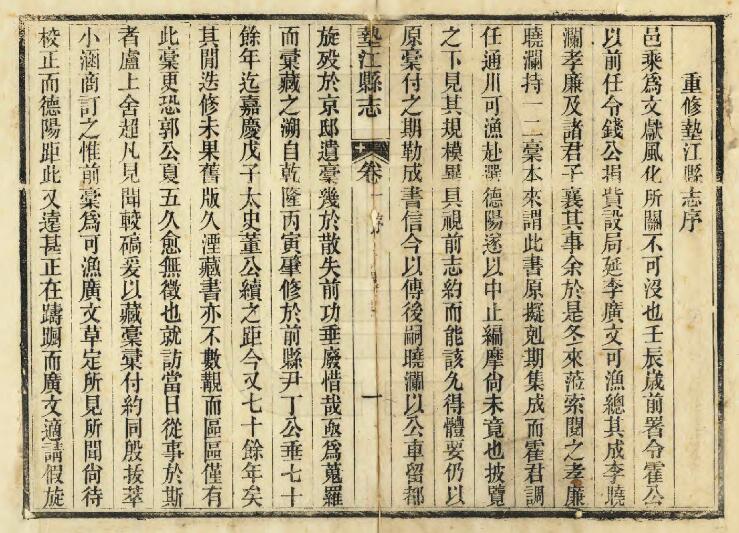 重修墊江縣志序
邑乘爲文獻風化所關不可沒也壬辰歲前署令霍公
以前任令錢公捐貲設局延李廣文可漁總其成李曉
瀾孝廉及諸君子襄其事余於是冬來蒞索閱之孝廉
曉瀾持一二稾本來謂此書原擬剋期集成而霍君調
任通川可漁赴選德陽遂以中止編摩尙未竟也披覽
之下見其規模畧具視前志約而能該允得體要仍以
原稾付之期勒成書信今以傳後嗣曉瀾以公車留都
墊江縣志
卷一
序
一
旋歿於京邸遺稾幾於散失前功垂廢惜哉亟爲蒐羅
而彙藏之溯自乾隆丙寅肇修於前縣尹丁公垂七十
餘年迄嘉慶戊子太史董公續之距今又七十餘年矣
其閒迭修未果舊版久湮藏書亦不數觀而區區僅有
此稾更恐郭公夏五久愈無徵也就訪當日從事於斯
者盧上舍超凡見聞較確爰以藏稾彙付約同殷拔萃
小涵商訂之惟前稾爲可漁廣文草定所見所聞尙待
校正而德陽距此又遠甚正在躊躕而廣文適請假旋